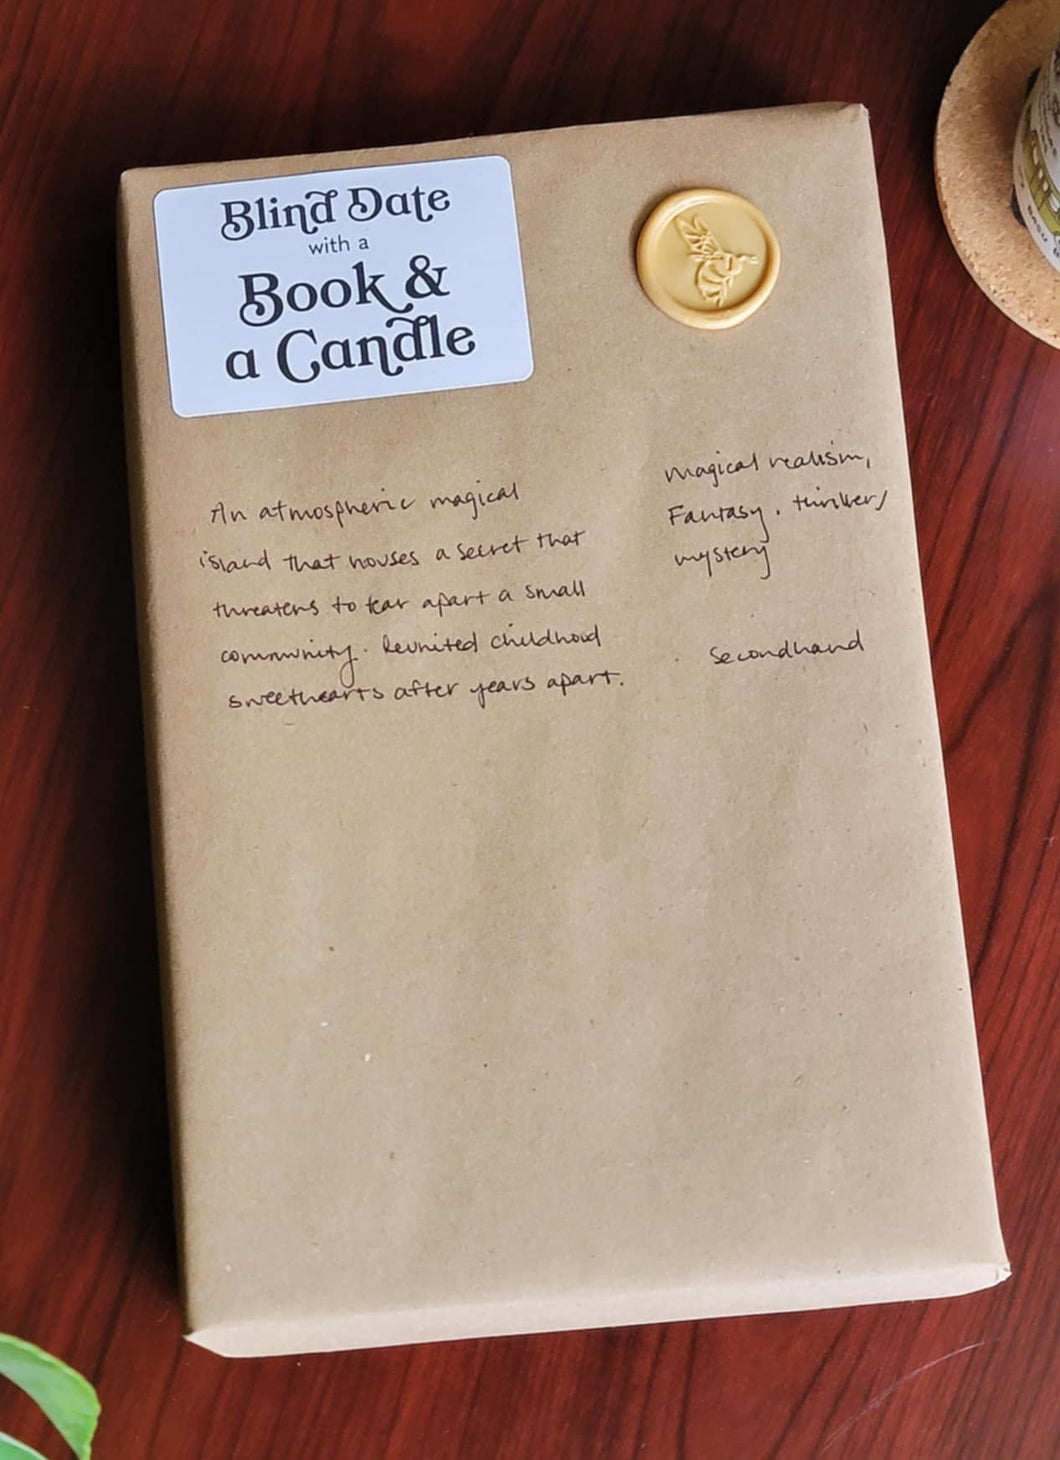 Blind Date
with a
Book &
a Candle
An atmospheric magical
island that houses a secret that
threatens to tear apart a small
community. Reunited childhood
sweethearts after years apart.
magical realism,
Fantasy, thriller/
mystery
Secondhand